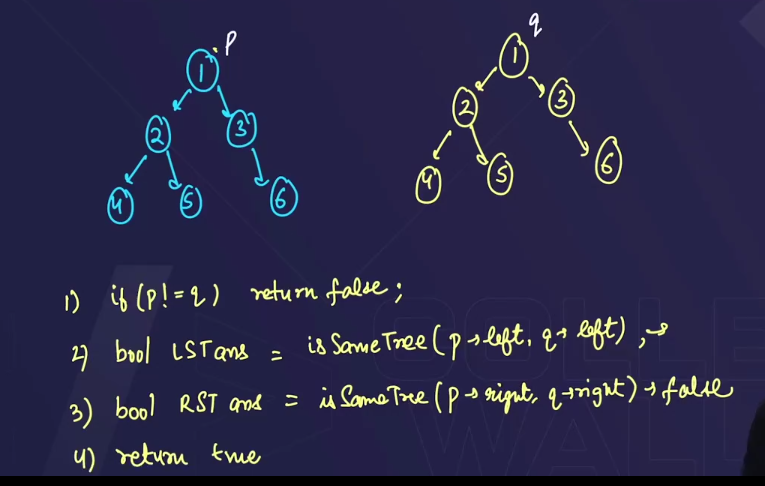 p
q
1
1
2
3
2
3
4
5
6
4
5
6
1) if (p != q) return false;
2) bool LST ans = is Same Tree (p→left, q→left), →
3) bool RST ans = is Same Tree (p→right, q→right) → false
4) return true
COLLE
WALL